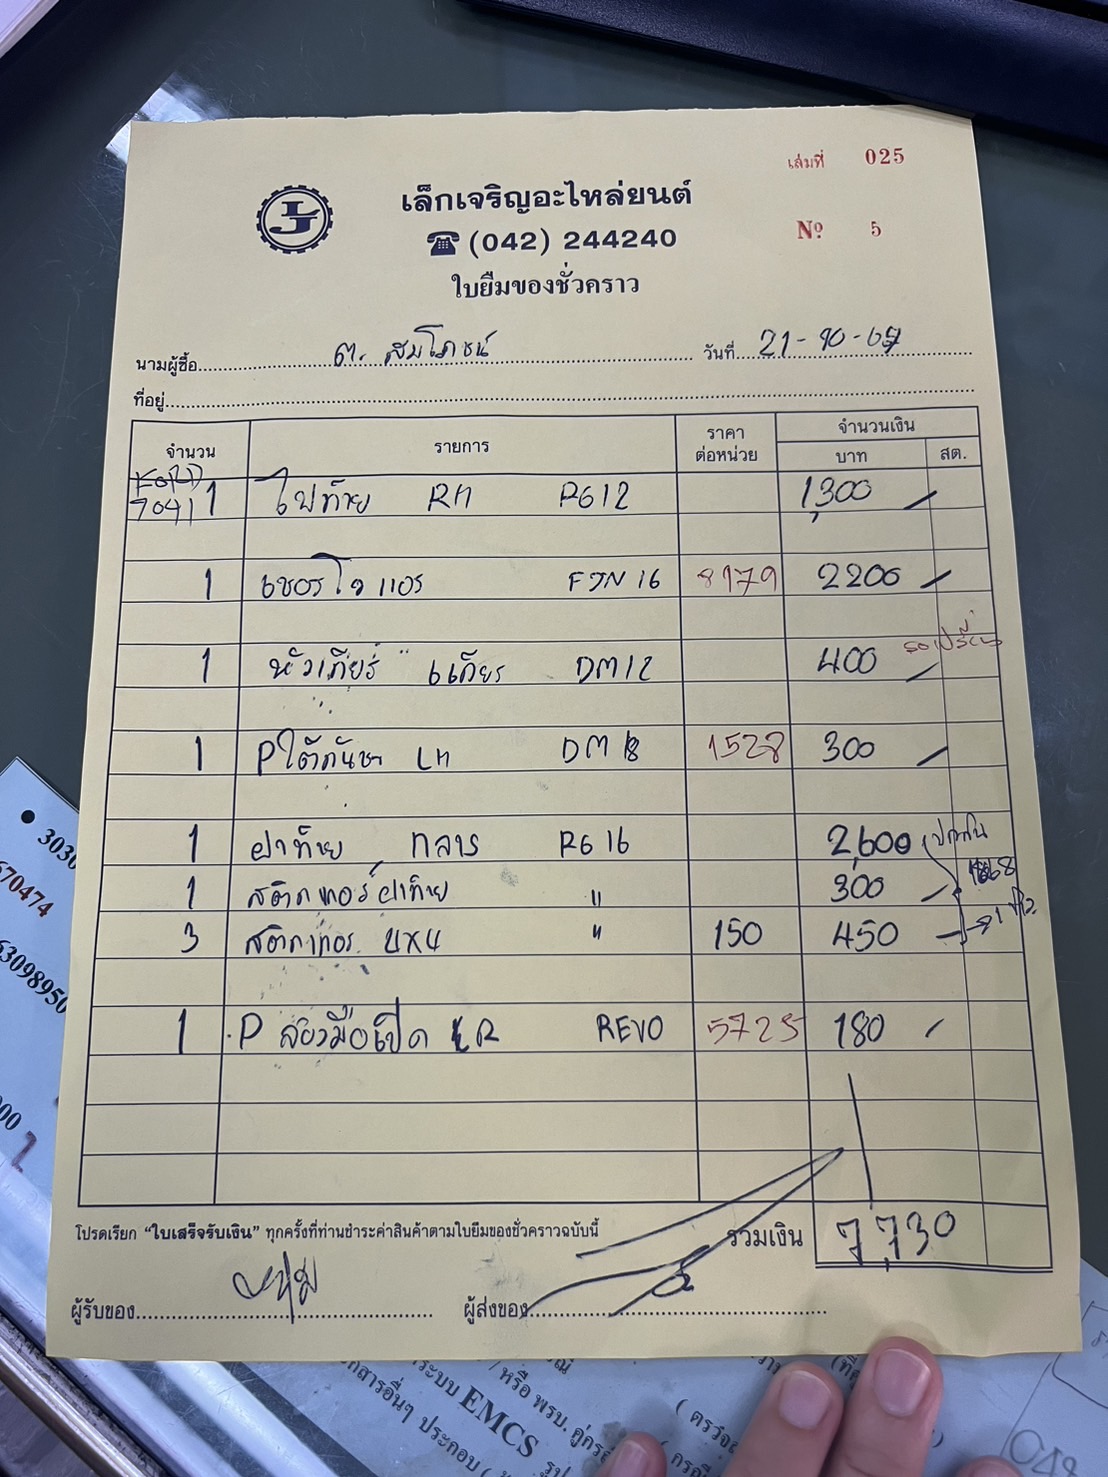 เล่มที่ 025
LJ
เล็กเจริญอะไหล่ยนต์
(042) 244240
Nº 5
ใบยืมของชั่วคราว
นามผู้ซื้อ ต. สมโภชน์ วันที่ 21-10-67
ที่อยู่
จำนวน รายการ ราคาต่อหน่วย จำนวนเงิน
บาท สต.
7041 1 ไฟท้าย RH RG12 1,300
1 เซอร์โวแอร์ FJN16 8179 2200
1 หัวเกียร์ DM12 400
1 P ใต้กันชน LH DM18 1528 300
1 ฝาท้าย กลาง RG16 2,600
1 สติกเกอร์ฝาท้าย " 300
3 สติกเกอร์ 4x4 " 150 450
1 P รองมือเปิด R REVO 5725 180
โปรดเรียก “ใบเสร็จรับเงิน” ทุกครั้งที่ท่านชำระค่าสินค้าตามใบยืมของชั่วคราวฉบับนี้
รวมเงิน 7,730
ผู้รับของ ผู้ส่งของ
3030
70474
63098950
ระบบ EMCS
/ หรือ พรบ.
กสารอื่นๆ ประกอบ (